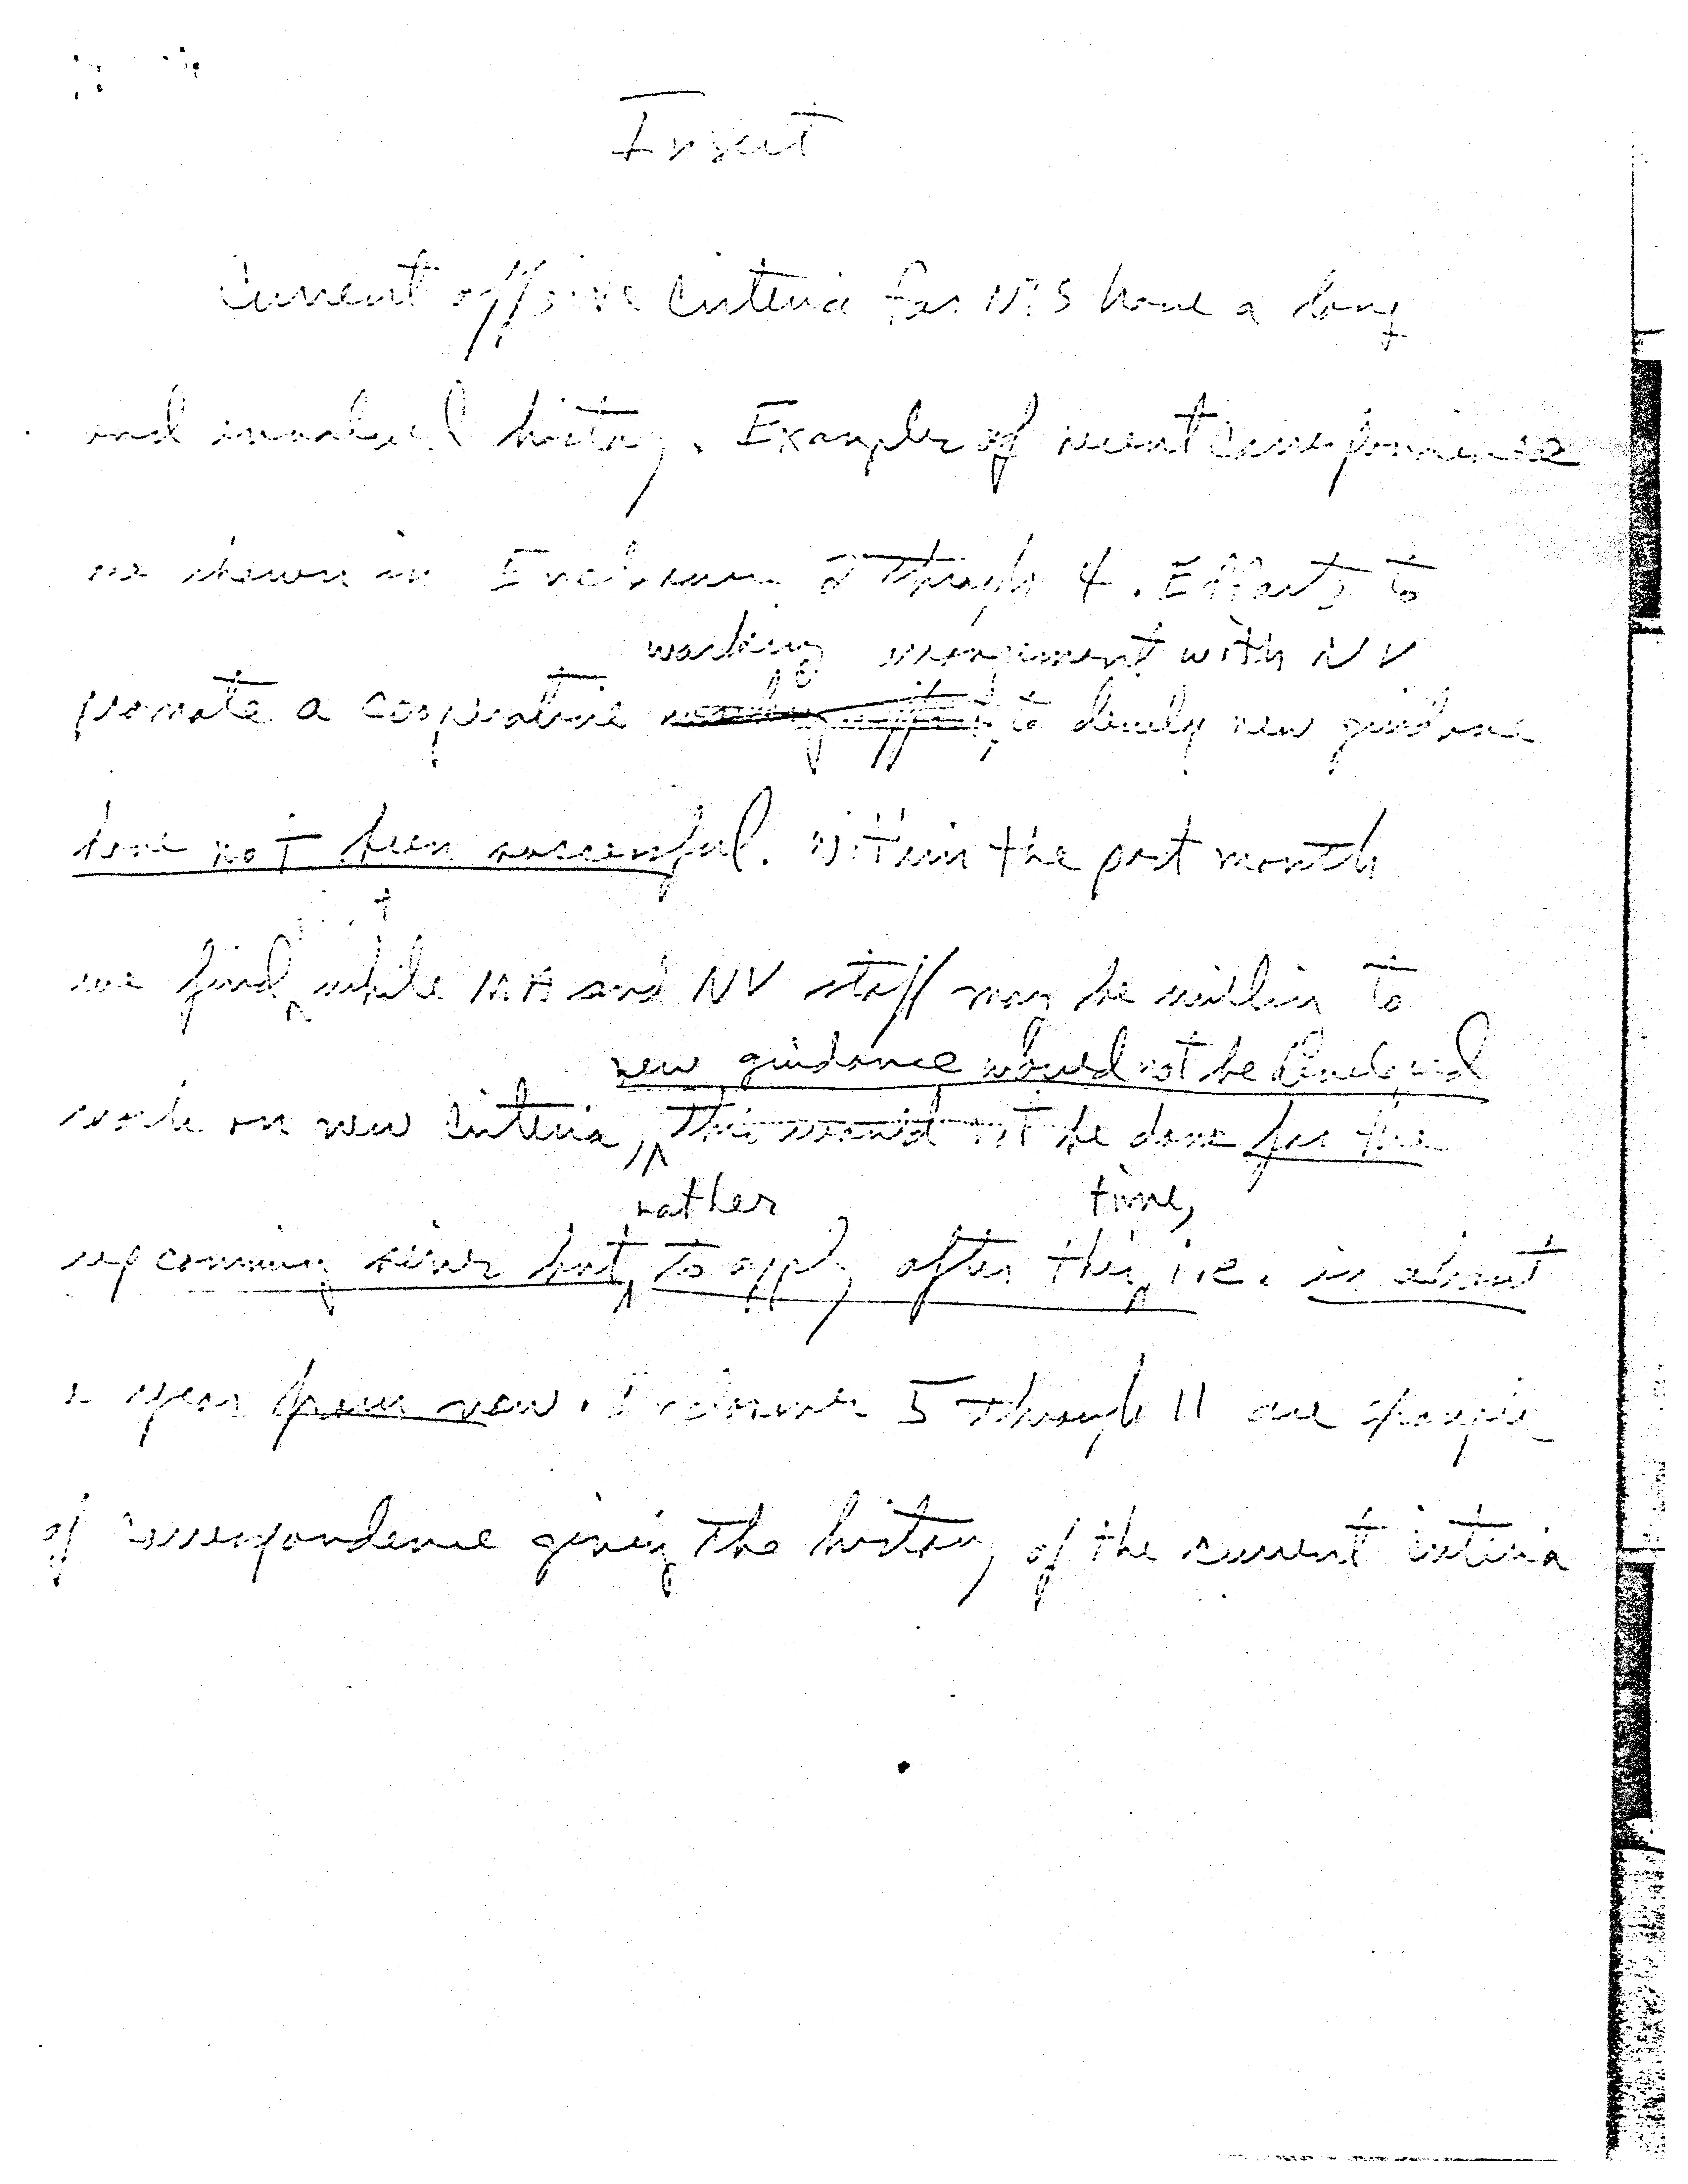 Insert
Current offsite Criteria for NTS have a long
and involved history. Examples of recent Correspondence
are shown in Enclosures 2 through 4. Efforts to
working arrangement with NV
promote a cooperative to develop new guidance
have not been successful. Within the past month
we find, while MA and NV staff may be willing to
new guidance would not be developed
work on new Criteria, this would not be done for the
rather time,
upcoming series but, to apply after this, i.e. in about
a year from now. Enclosures 5 through 11 are examples
of correspondence giving the history of the current Criteria